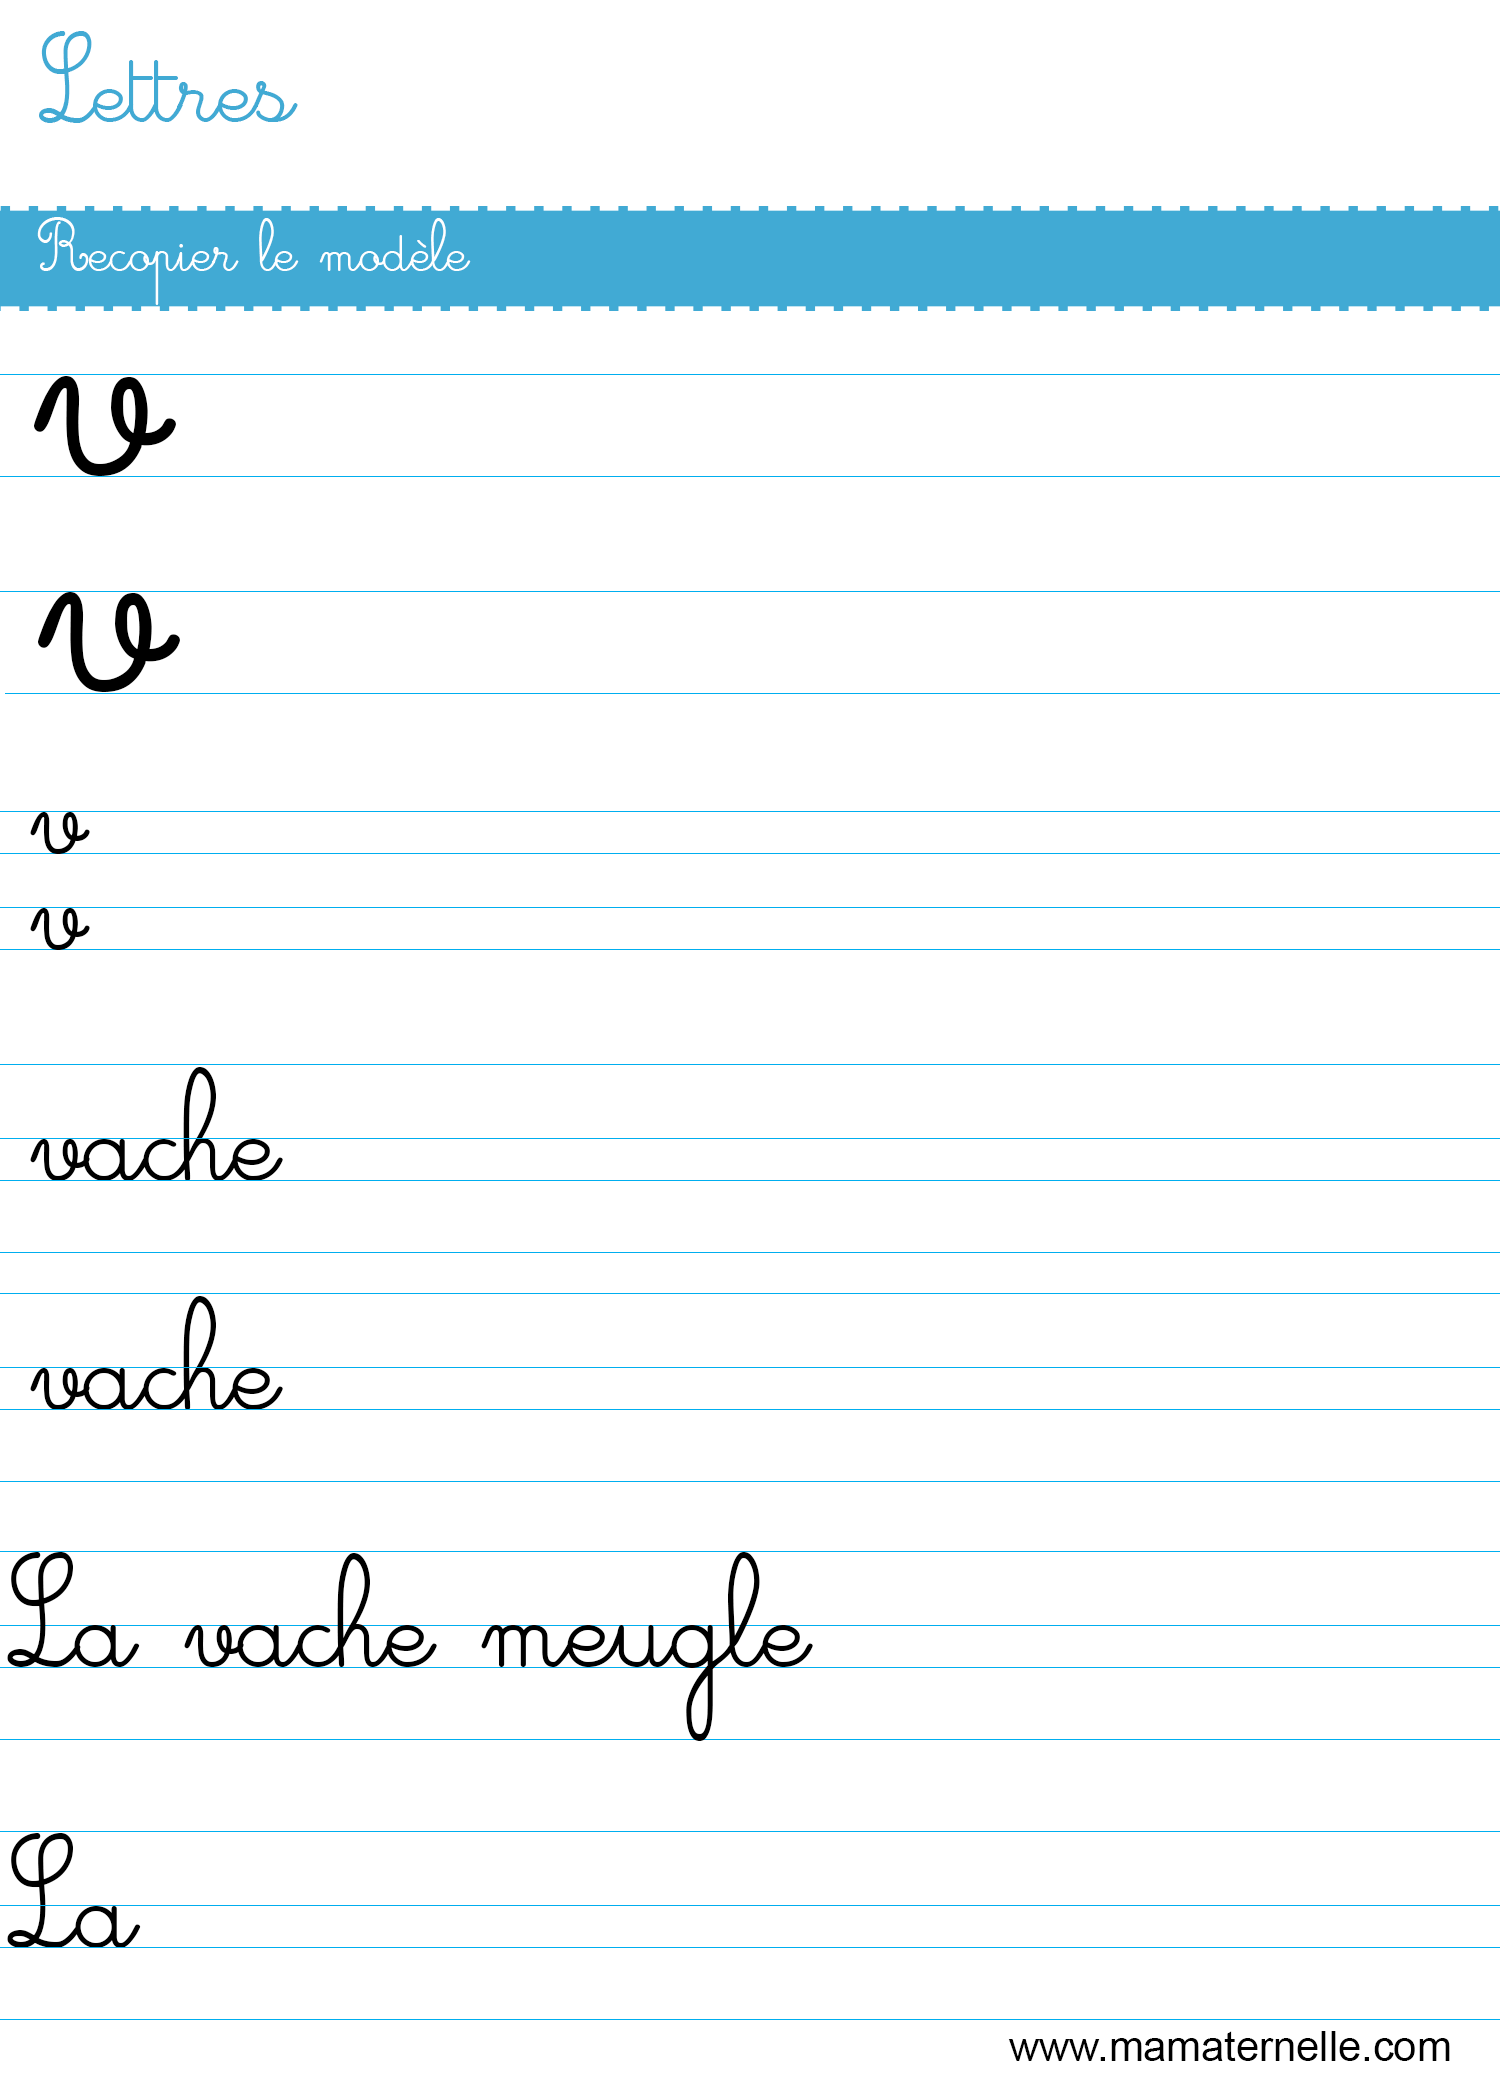 Lettres
Recopier le modèle
v
v
v
v
vache
vache
La vache meugle
La
www.mamaternelle.com